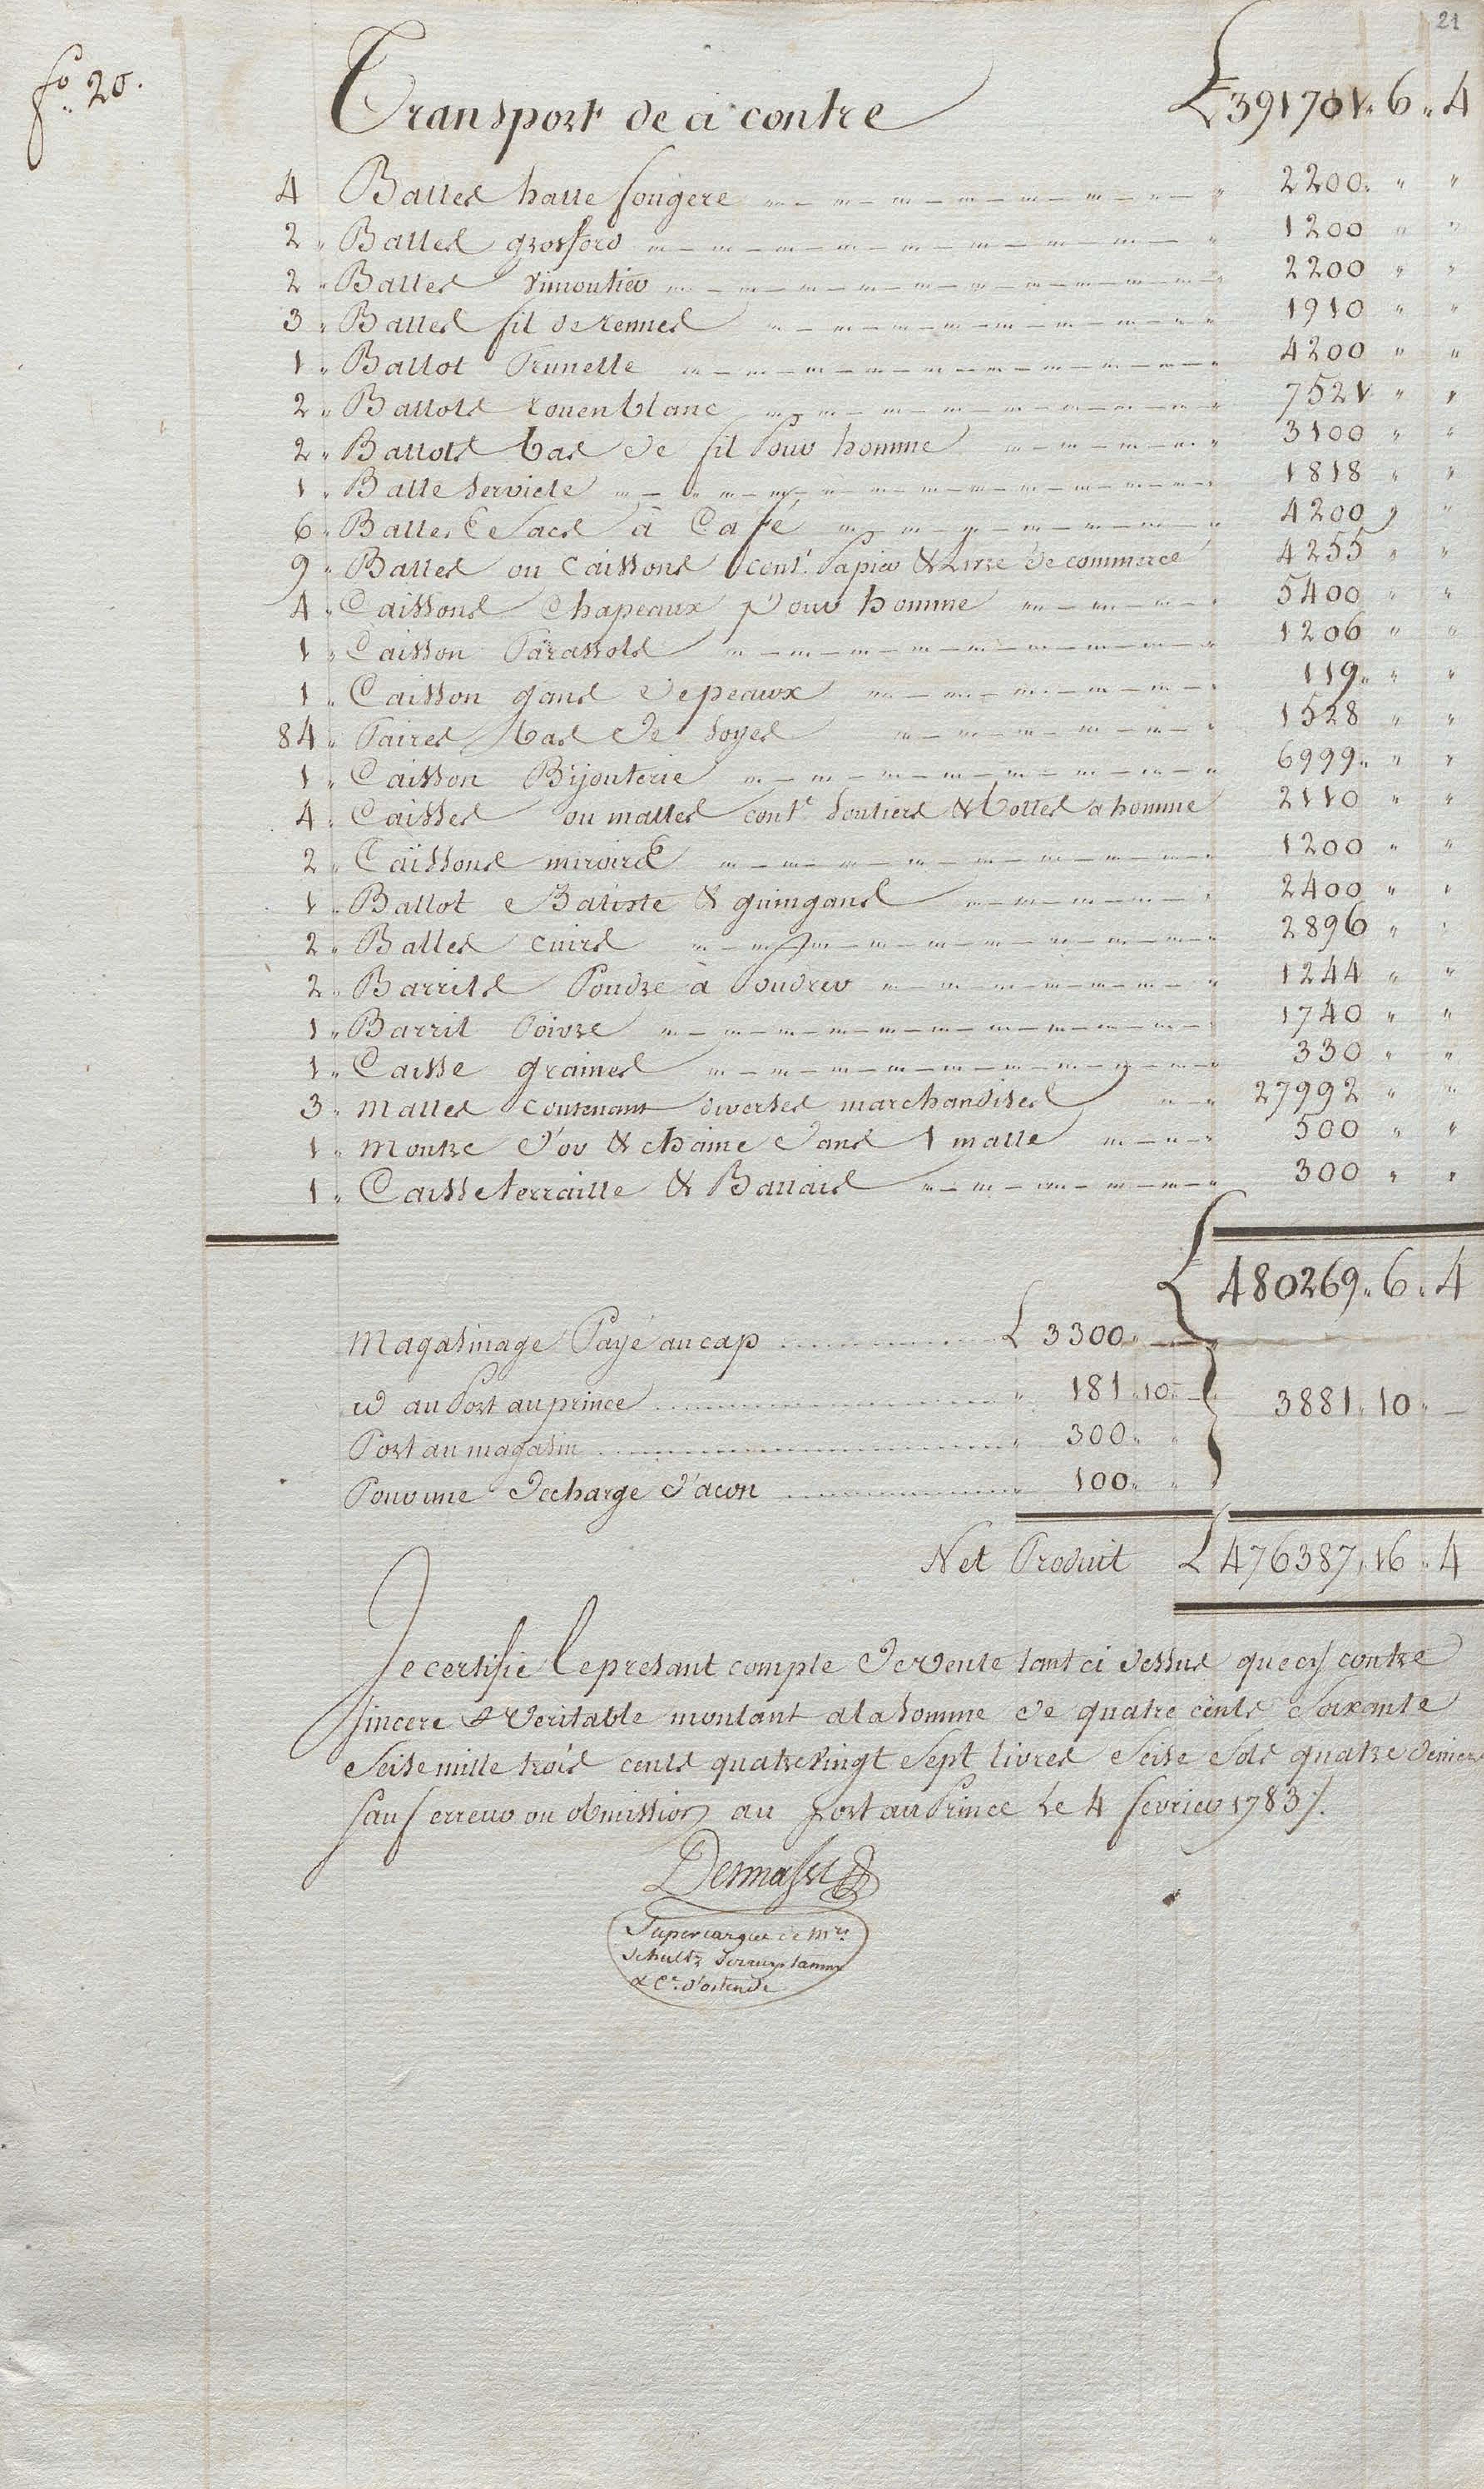 21
fo 20.
Transport de a contre £ 391701 " 6 " 4
4 Balles halle fougere 2200 " "
2 " Balles grosford 1200 " "
2 " Balles vimoutier 2200 " "
3 " Balles fil de rennes 1910 " "
1 " Ballot Prunelle 4200 " "
2 " Ballots rouen blanc 7521 " "
2 " Ballots bas de fil Pour homme 3100 " "
1 " Balle serviete 1818 " "
6 " Balles Sacs à Café 4200 " "
9 " Balles ou Caissons cont.t Papier & Livre de commerce 4255 " "
4 " Caissons Chapeaux Pour homme 5400 " "
1 " Caisson Parassols 1206 " "
1 " Caisson gans de peaux 119 " "
84 " Paires bas de soyes 1528 " "
1 " Caisson Bijouterie 6999 " "
4 " Caisses ou malles cont.t souliers & bottes a homme 2110 " "
2 " Caissons miroirs 1200 " "
1 " Ballot Batiste & guingans 2400 " "
2 " Balles cuirs 2896 " "
2 " Barrils Poudre à Poudrer 1244 " "
1 " Barril Poivre 1740 " "
1 " Caisse graines 330 " "
3 " malles contenant diverses marchandises 27992 " "
1 " montre d'or & chaine dans 1 malle 500 " "
1 " Caisse terraille & Ballais 300 " "
£ 480269 " 6 " 4
Magasinage Payé au cap £ 3300 "
id au Port au prince " 181 " 10 " 3881 " 10 "
Port au magasin " 300 " "
Pour une decharge d'acon " 100 " "
Net Produit £ 476387 " 16 " 4
Je certifie le presant compte de vente tant ci dessus que cy contre
sincere & veritable montant a la somme de quatre cents soixante
seise mille trois cents quatre vingt sept livres seise sols quatre deniers
sauf erreur ou obmission au port au Prince le 4 fevrier 1783 /.
Supercargue de Mrs
Schultz
& Ce. d'ostende